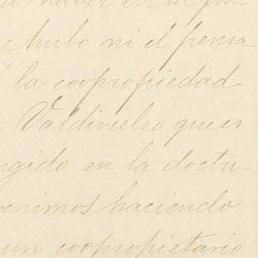 e hubo ni el pensa
la coopropiedad
Valdivielso quien
igido en la doctri-
venimos haciendo
un coopropietario